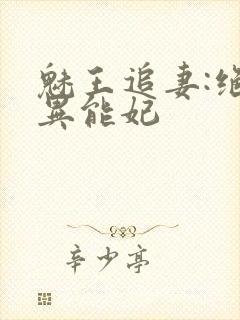 魅王追妻:绝
異能妃
辛少亭